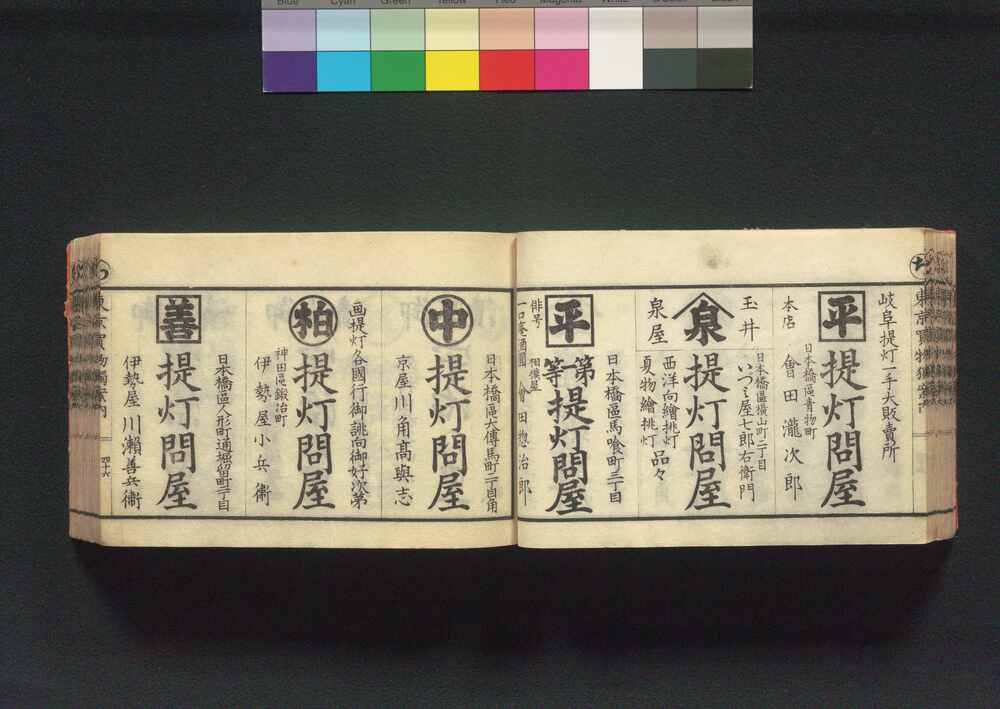 Blue Cyan Green Yellow Red Magenta White
岐阜提灯一手大販賣所
平
提灯問屋
日本橋區青物町
本店
會田瀧次郎
玉井
泉
泉屋
日本橋區横山町二丁目
いつミ屋七郎右衛門
提灯問屋
西洋向繪挑灯
夏物繪挑灯
品々
日本橋區馬喰町三丁目
平
第一等
提灯問屋
俳号
相模屋
會田惣治郎
日本橋區大傳馬町二丁目角
中
提灯問屋
京屋川角髙與志
画提灯各國行御誂向御好次第
柏
提灯問屋
神田區鍛冶町
伊勢屋小兵衞
日本橋區人形町通堀留町二丁目
善
提灯問屋
伊勢屋川瀬善兵衞
四十六